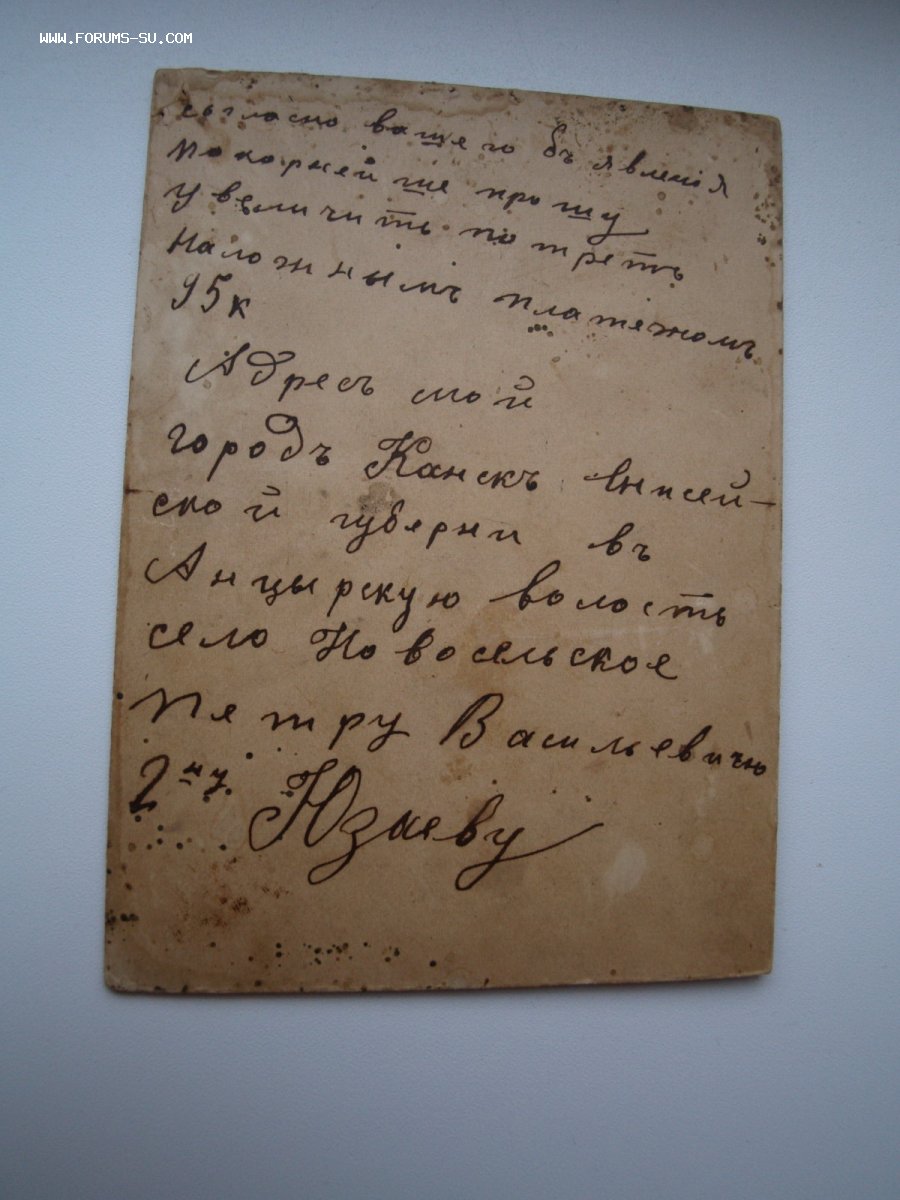 WWW.FORUMS-SU.COM
согласно вашего бъявленія
покорнейше прошу
увеличить потретъ
Наложнымъ платежомъ
95к
Адресъ мой
городъ Канскъ Енисей-
ской губерни въ
Анцырскую волость
село Новосельское
Петру Васильевичю
2му Юзаеву